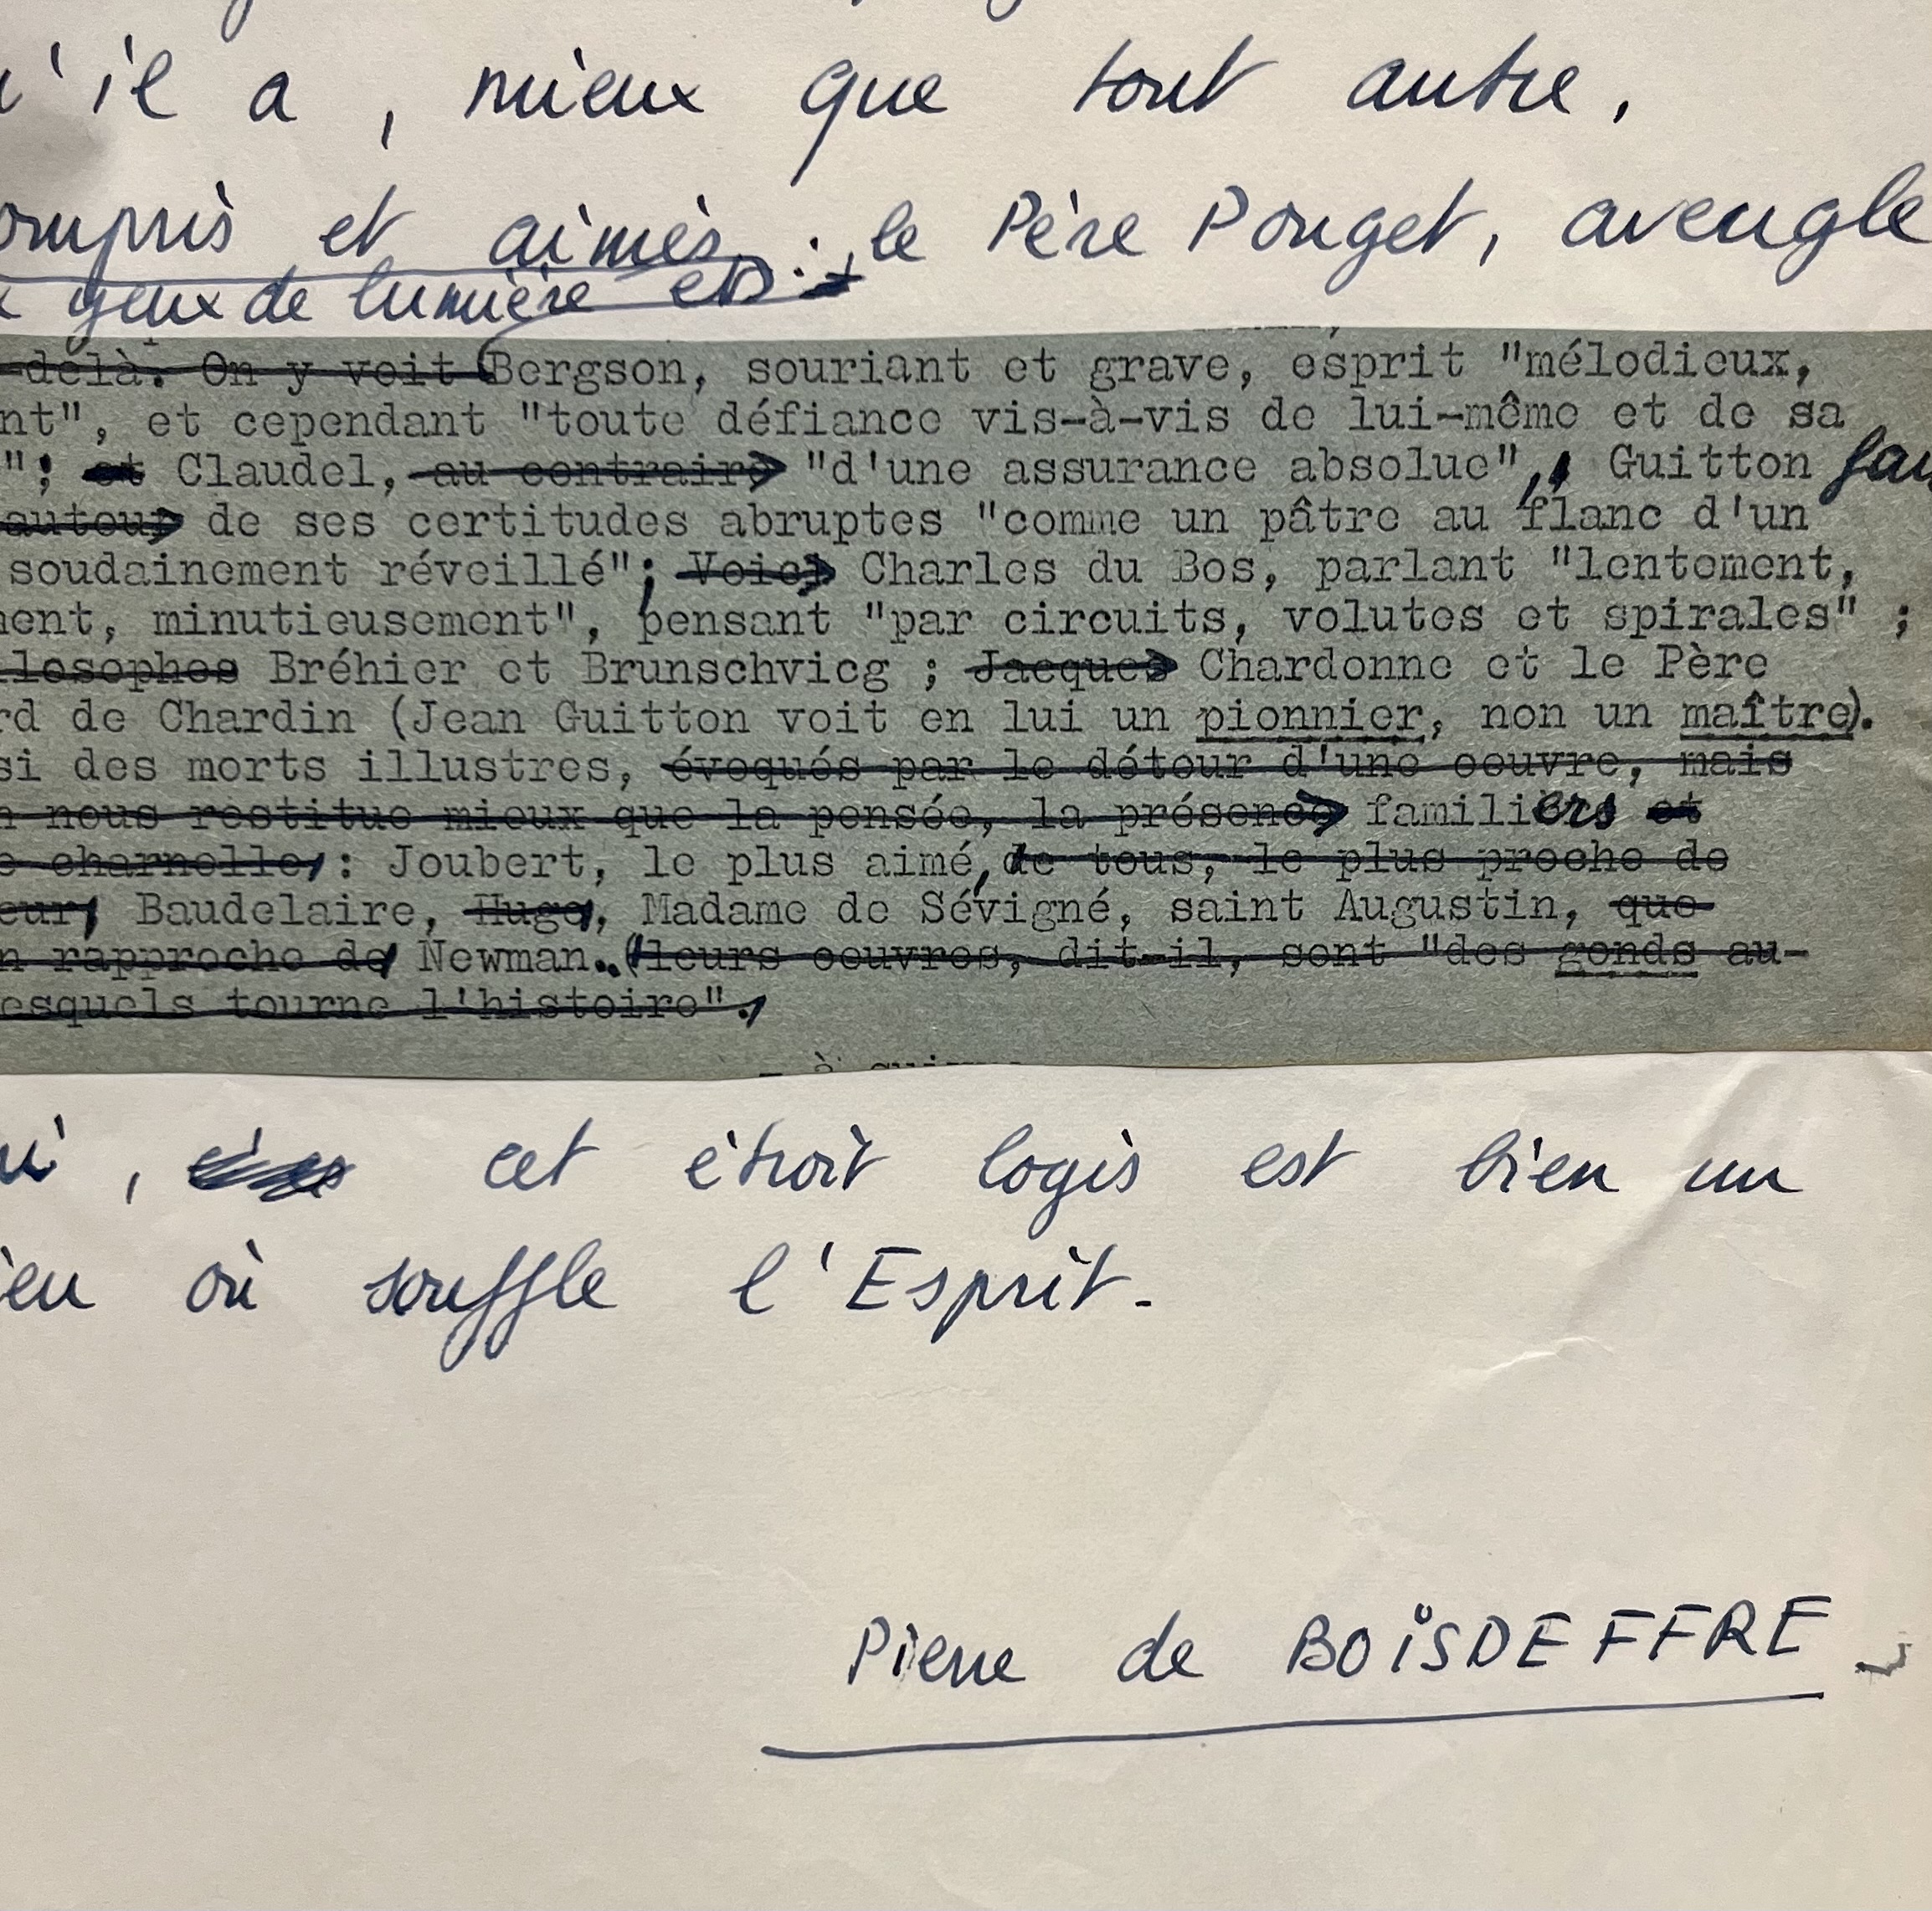 'il a, mieux que tout autre,
ompris et aimés : le Père Pouget, aveugle
yeux de lumière et
-delà. On y voit Bergson, souriant et grave, esprit "mélodieux,
nt", et cependant "toute défiance vis-à-vis de lui-même et de sa
"; et Claudel, au contraire "d'une assurance absolue", Guitton
auteur de ses certitudes abruptes "comme un pâtre au flanc d'un
soudainement réveillé"; Voici Charles du Bos, parlant "lentement,
ment, minutieusement", pensant "par circuits, volutes et spirales" ;
losophes Bréhier et Brunschvicg ; Jacques Chardonne et le Père
rd de Chardin (Jean Guitton voit en lui un pionnier, non un maître).
si des morts illustres, évoqués par le détour d'une oeuvre, mais
n nous restitue mieux que la pensée, la présence familiers et
e charnelle, : Joubert, le plus aimé, de tous, le plus proche de
eur, Baudelaire, Hugo, Madame de Sévigné, saint Augustin, que
n rapproche de Newman. (leurs oeuvres, dit-il, sont "des gonds au-
esquels tourne l'histoire".
- à suivre
, cet étroit logis est bien un
ieu où souffle l'Esprit.
Pierre de BOISDEFFRE